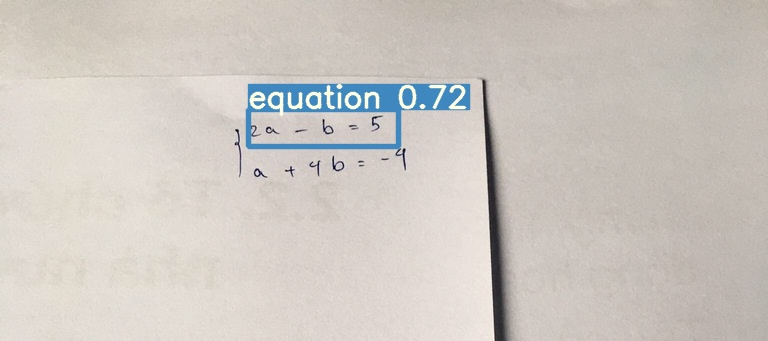 equation 0.72
2a - b = 5
a + 4b = -4